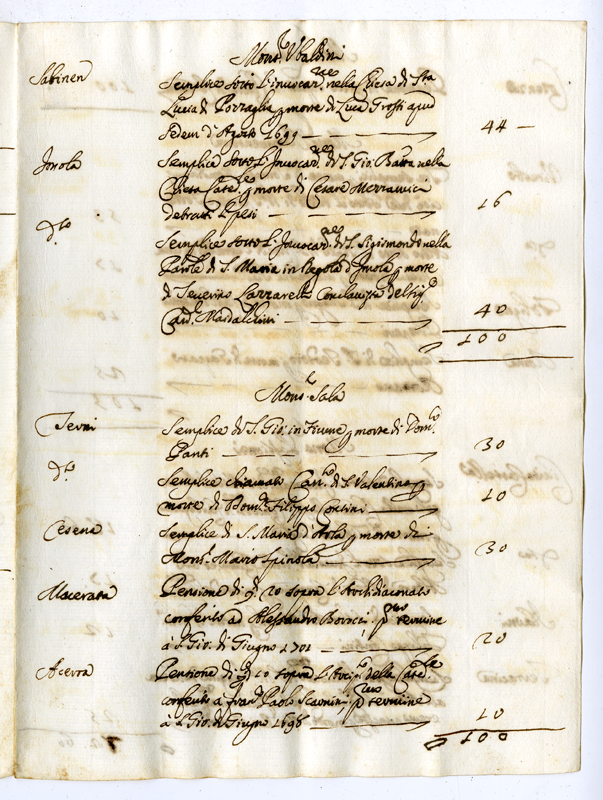 Mons.r Vbaldini
Sabinen Semplice sotto l'inuocaz.ne nella Chiesa di S.ta
Lucia di Pozzaglia morte di Luca Grossi
Sedem d'Agosto 1699 44
Imola Semplice sotto l'Inuocaz.ne di S. Gio: Batta nella
Chiesa Cated.le morte di Cesare
detratti li pesi 16
d.to Semplice sotto l'Inuocaz.ne di S. Sigismondo nella
Paro.le di S. Maria in Regola d'Imola morte
di Seuerino Lazzarelli Conclauista del Sig.r
Card. Maidalchini 40
100
Mons.r Sala
Terni Semplice di S. Gio: in Fiume morte di Dom.co
Panti 30
d.to Semplice chiamato Can.to di S. Valentino
morte di Dom.co Filippo Contini 10
Cesena Semplice di S. Maria d'Isola morte di
Mons.r Mario Spinola 30
Macerata Pensione di 20 sopra l'Archidiaconato
conferito a Alessandro p.mo termine
à S. Gio: di Giugno 1701 20
Acerra Pensione di 10 sopra l'Arcip.to della Cated.le
conferito à Fran.co Paolo p.mo termine
à S. Gio: di Giugno 1698 10
100